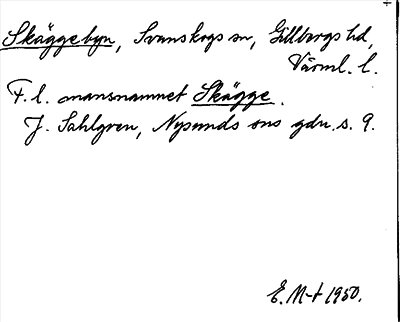 Skäggebyn, Svanskogs sn, Gillbergs hd,
Värml. l.
F. l. mansnamnet Skägge.
J. Sahlgren, Nysunds sns gdn. s. 9.
E. M-t 1950.